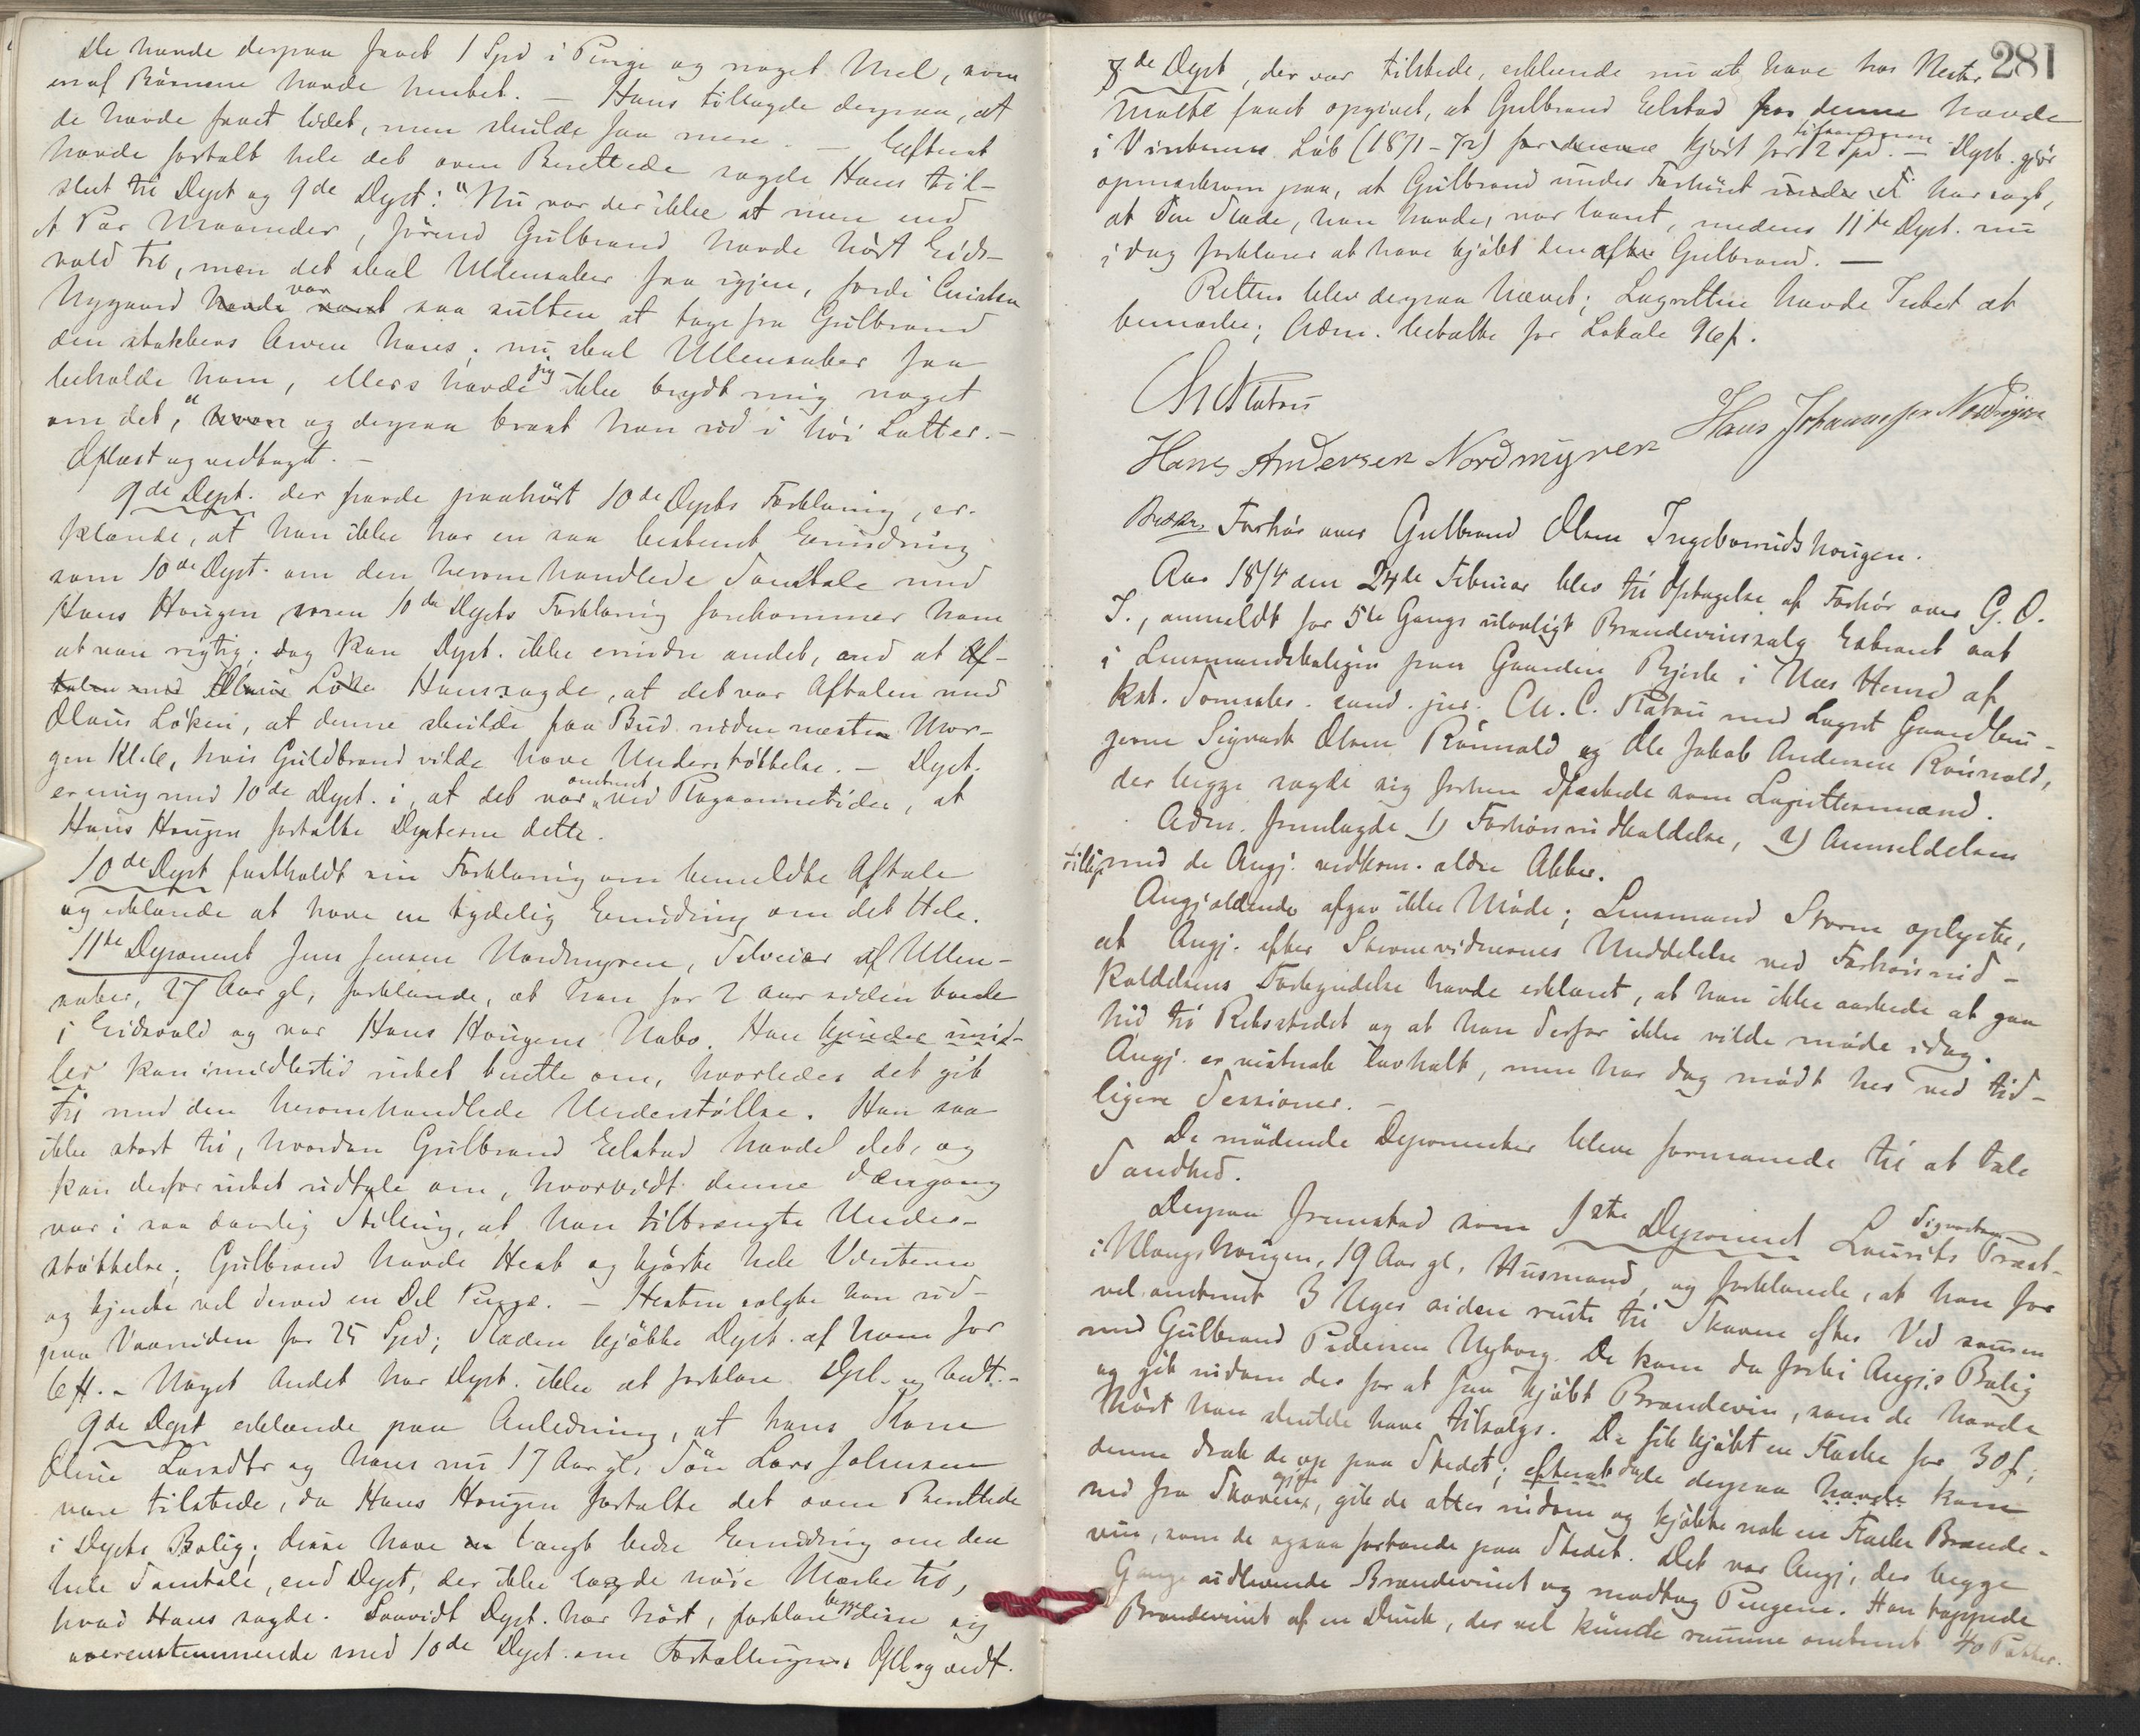 De havde derpaa faaet 1 Spd i Penge og noget Mel, som
en af Børnene havde hentet. – Hans tillagde derpaa, at
de havde faaet lidet, men skulde faa mere. – Efterat
havde fortalt hele det oven Berettede sagde Hans til-
slut til Dept og 9de Dept: "Nu var der ikke at mere end
et Par Maaneder, førend Gulbrand havde hørt Eids-
vold til, men det skal Ullensaker faa igjen, fordi
Nygaard havde var været saa sulten at tage fra Gulbrand
den stakkers Arven hans; nu skal Ullensaker faa
beholde ham, ellers havde jeg ikke brydt mig noget
om det," hvor og derpaa brast han ud i høi Latter. –
Oplæst og vedtaget. –
9de Dept. der havde paahørt 10de Depts Forklaring, er-
klærede, at han ikke har en saa bestemt Erindring
som 10de Dept. om den heromhandlede Samtale med
Hans Haugen, men 10de Depts Forklaring forekommer ham
at være rigtig; dog kan Dept. ikke erindre andet, end at Af-
talen med Olaus Løke Hans sagde, at det var Aftalen med
Olaus Løken, at denne skulde faa Bud inden næste Mor-
gen Kl. 6, hvis Guldbrand vilde have Understøttelse. – Dept.
er enig med 10de Dept. i, at det var omtrent ved Plogaannetider, at
Hans Haugen fortalte Depterne dette.
10de Dept fastholdt sin Forklaring om bemeldte Aftale
og erklærede at have en tydelig Erindring om det Hele.
11te Deponent Jens Jensen Nordmyren, Selveier af Ullen-
saker, 27 Aar gl, forklarede, at han for 2 Aar siden boede
i Eidsvold og var Hans Haugens Nabo. Han kjender imid-
ler kan imidlertid intet berette om, hvorledes det gik
til med den heromhandlede Understøttelse. Han saa
ikke stort til, hvordan Gulbrand Eelstad havde det, og
kan derfor intet udtale om, hvorvidt denne dengang
var i saa daarlig Stilling, at han tiltrængte Under-
støttelse; Gulbrand havde Hest og kjørte hele Vinteren
og tjente vel derved en Del Penge. – Hesten solgte han ud-
paa Vaarsiden for 25 Spd; Slæden kjøbte Dept. af ham for
6 ₶. – Noget Andet har Dept. ikke at forklare. Opl. og vedt. –
9de Dept erklærede paa Anledning, at hans Kone
Oline Larsdtr og hans nu 17 Aar gl. Søn Lars Johnsen
vare tilstede, da Hans Haugen fortalte det oven Berettede
i Depts Bolig; disse have en langt bedre Erindring om den
hele Samtale, end Dept, der ikke lagde nøie Mærke til,
hvad Hans sagde. Saavidt Dept. har hørt, forklare begge disse sig
overensstemmende med 10de Dept. om Fortællingen. Opl. og vedt.
281
8de Dept, der var tilstede, erklærede nu at have hos
Malte faaet opgivet, at Gulbrand Eelstad hos denne havde
i Vinterens Løb (1871-72) for denne kjørt for tilsammen 12 Spd. – Dept. gjør
opmærksom paa, at Gulbrand under Forhøret under et har sagt,
at den Slæde, han havde, var laant, medens 11te Dept. nu
idag forklarer at have kjøbt den af Gulbrand. –
Retten blev derpaa hævet; Lagrettin havde Intet at
bemærke; Adm. betalte for Lokale
Ch. Platou
Hans Andersen Nordmyren Hans Johannessen Nordmyren
Forhør over Gulbrand Olsen Ingeborrudshougen.
Aar 1874 den 24de Februar blev til Optagelse af Forhør over G. O.
I., anmeldt for 5te Gangs ulovligt Brændevinssalg Extraret sat
i Lensmandsboligen paa Gaarden Bjerke i Næs Herred af
kst. Domsaber. cand. jur. Ch. C. Platou med Lagret Gaardbru-
gerne Sigvart Olsen Raunold og Ole Jakob Andersen Raunold,
der begge sagde sig forhen edfæstede som Lagrettesmænd.
Adm. fremlagde 1) Forhørsindkaldelse, 2) Anmeldelsen
tillige med de Angj. vedkom. ældre Akter.
Angjældende afgav ikke Møde; Lensmand Storm oplyste,
at Angj. efter Stevnevidnernes Meddelelse ved Forhørsind-
kaldelsens Forkyndelse havde erklæret, at han ikke orkede at gaa
hid til Retsstedet og at han derfor ikke vilde møde idag.
Angj. er vistnok lavhalt, men har dog mødt her ved tid-
ligere Sessioner. –
De mødende Deponenter bleve formanede til at tale
Sandhed.
Derpaa fremstod som 1ste Deponent Laurits Sigvartsen Præst-
i Haugen, 19 Aar gl, Husmand, og forklarede, at han for
vel omtrent 3 Uger siden reiste til Skoven efter Ved sammen
med Gulbrand Pedersen Nyborg. De kom da forbi Angj.s Bolig
og gik indom der for at faa kjøbt Brændevin, som de havde
hørt han skulde have tilsalgs. De fik kjøbt en Flaske for 30 ß;
denne drak de op paa Stedet; efterat de derpaa havde kom
ned fra Skoven igjen, gik de atter indom og kjøbte nok en Flaske Brænde-
vin, som de ogsaa fortærede paa Stedet. Det var Angj., der begge
Gange udleverede Brændevinet og modtog Pengene. Han tappede
Brændevinet af en Dunk, der vel kunde rumme omtrent 40 Potter.